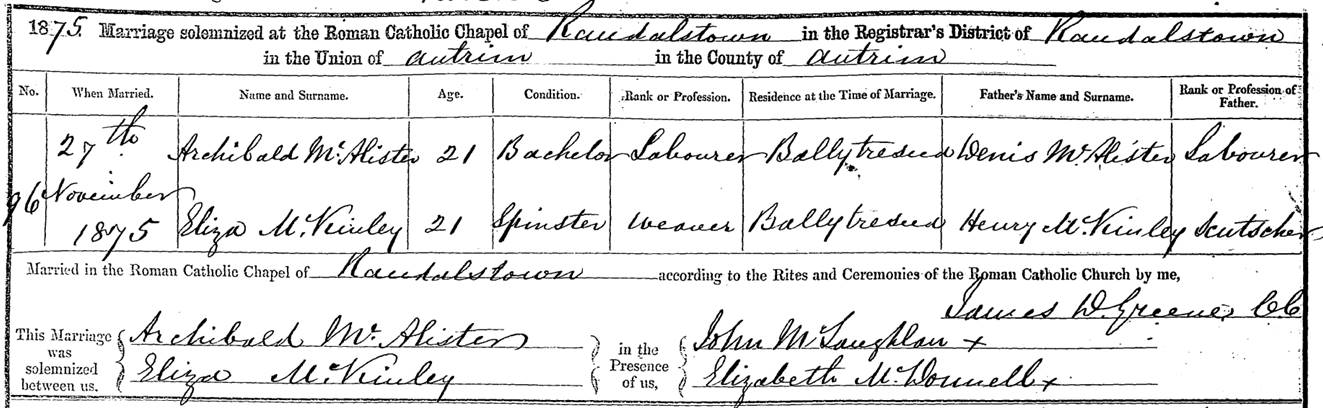 1875. Marriage solemnized at the Roman Catholic Chapel of Randalstown in the Registrar's District of Randalstown
in the Union of Antrim in the County of Antrim
No. When Married. Name and Surname. Age. Condition. Rank or Profession. Residence at the Time of Marriage. Father's Name and Surname. Rank or Profession of Father.
27th Archibald McAlister 21 Bachelor Labourer Ballytresud Denis McAlister Labourer
96 November
1875 Eliza McKinley 21 Spinster Weaver Ballytresud Henry McKinley Scutcher
Married in the Roman Catholic Chapel of Randalstown according to the Rites and Ceremonies of the Roman Catholic Church by me,
James D. Greene CC
This Marriage was solemnized between us, Archibald McAlister in the Presence of us, John McLaughlan x
Eliza McKinley Elizabeth McDonnell x